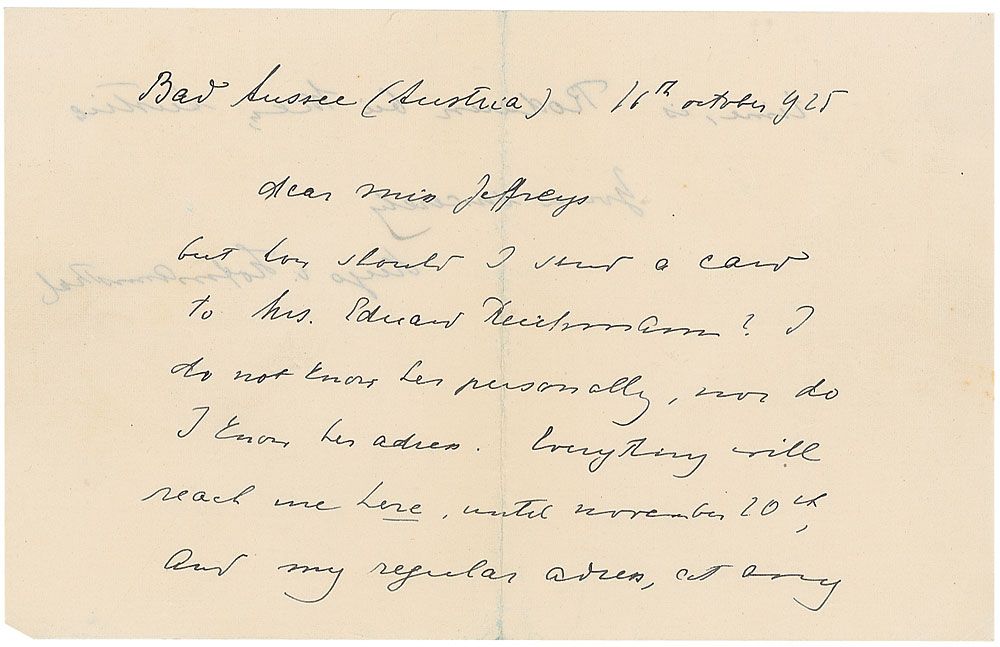 Bad Aussee (Austria) 16th october 925
dear miss Jeffreys
but how should I send a card
to Mrs. Eduard ? I
do not know her personally, nor do
I know her adress. Everything will
reach me here, until november 20th,
and my regular adress, at any